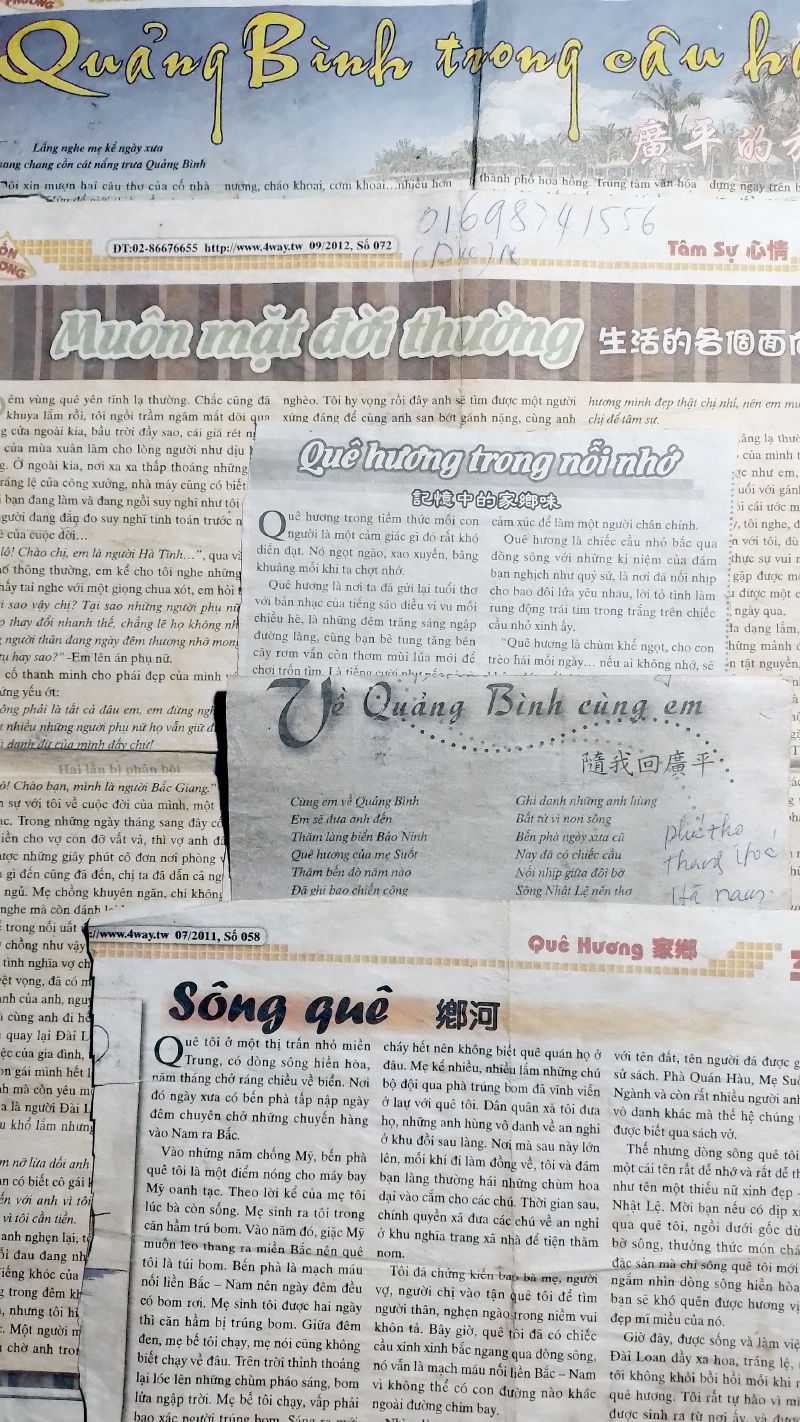 Quảng Bình trong câu
Lắng nghe mẹ kể ngày xưa
chang chang cồn cát nắng trưa Quảng Bình
廣平的
Tôi xin mượn hai câu thơ của cố nhà
nướng, cháo khoai, cơm khoai...nhiều hơn
thành phố hoa hồng. Trung tâm văn hóa
dựng ngay trên
01698741556
ĐT:02-86676655 http://www.4way.tw 09/2012, Số 072
Tâm Sự 心情
Muôn mặt đời thường
生活的各個面
êm vùng quê yên tĩnh lạ thường. Chắc cũng đã
khuya lắm rồi, tôi ngồi trầm ngâm mắt dõi qua
cửa ngoài kia, bầu trời đầy sao, cái giá rét
của mùa xuân làm cho lòng người như dịu
Ở ngoài kia, nơi xa xa thấp thoáng những
lệ của công xưởng, nhà máy cũng có biết
bạn đang làm và đang ngồi suy nghĩ như tôi
người đang đắn đo suy nghĩ tính toán trước
của cuộc đời…
lô! Chào chị, em là người Hà Tĩnh…”, qua
thông thường, em kể cho tôi nghe những
tai nghe với một giọng chua xót, em hỏi
sao vậy chị? Tại sao những người phụ
thay đổi nhanh thế, chẳng lẽ họ không
người thân đang ngày đêm thương nhớ
hay sao?” -Em lên án phụ nữ.
có thanh minh cho phái đẹp của mình
yếu ớt:
phải là tất cả đâu em, em đừng
nhiều những người phụ nữ họ vẫn giữ
danh dự của mình đấy chứ!
Hai lần bị phản bội
Chào bạn, mình là người Bắc Giang.”
sự với tôi về cuộc đời của mình, một
Trong những ngày tháng sang đây
cho vợ con đỡ vất vả, thì vợ anh
những giây phút cô đơn nơi phòng
gì đến cũng đã đến, chị ta đã dẫn cả
ngủ. Mẹ chồng khuyên ngăn, chi không
nghe mà còn đánh
trong nỗi uất
chồng như vậy
tình nghĩa vợ
vọng, đã có
của anh,
cùng anh đi
quay lại Đài
của gia đình,
gái mình hết
mà còn yêu
là người Đài
khổ lắm nhưng
nỡ lừa dối anh
có biết cô gái
với anh vì tôi
vì tôi cần tiền.
anh nghẹn lại,
đau đang
khóc của
trong đêm
nhưng tôi
Một người
chờ anh
nghèo. Tôi hy vọng rồi đây anh sẽ tìm được một người
xứng đáng để cùng anh san bớt gánh nặng, cùng anh
hương mình đẹp thật chị nhỉ, nên em
chị để tâm sự.
lạ thường
của mình
như em,
với gánh
cái ước
tôi nghe,
với tôi, dù
thực sự vui
gặp được
được một
ngày qua.
đa dạng lắm,
mảnh
tật nguyền,
Quê hương trong nỗi nhớ
記憶中的家鄉味
Quê hương trong tiềm thức mỗi con
người là một cảm giác gì đó rất khó
diễn đạt. Nó ngọt ngào, xao xuyến, bâng
khuâng mỗi khi ta chợt nhớ.
Quê hương là nơi ta đã gửi lại tuổi thơ
với bản nhạc của tiếng sáo diều vi vu mỗi
chiều hè, là những đêm trăng sáng ngập
đường làng, cùng bạn bè tung tăng bên
cây rơm vấn còn thơm mùi lúa mới để
chơi trốn tìm. Là tiếng cười
cảm xúc để làm một người chân chính.
Quê hương là chiếc cầu nhỏ bắc qua
dòng sông với những kỉ niệm của đám
bạn nghịch như quỷ sứ, là nơi đã nối nhịp
cho bao đôi lứa yêu nhau, lời tỏ tình làm
rung động trái tim trong trắng trên chiếc
cầu nhỏ xinh ấy.
“Quê hương là chùm khế ngọt, cho con
trèo hái mỗi ngày… nếu ai không nhớ, sẽ
Về Quảng Bình cùng em
隨我回廣平
Cùng em về Quảng Bình
Em sẽ đưa anh đến
Thăm làng biển Bảo Ninh
Quê hương của mẹ Suốt
Thăm bến đò năm nào
Đã ghi bao chiến công
Ghi danh những anh hùng
Bất tử vì non sông
Bến phà ngày xưa cũ
Nay đã có chiếc cầu
Nối nhịp giữa đôi bờ
Sông Nhật Lệ nên thơ
phú thọ
Thanh Hoá
Hà nam
://www.4way.tw 07/2011, Số 058
Quê Hương 家鄉
Sông quê 鄉河
Quê tôi ở một thị trấn nhỏ miền
Trung, có dòng sông hiền hòa,
năm tháng chở ráng chiều về biển. Nơi
đó ngày xưa có bến phà tấp nập ngày
đêm chuyên chở những chuyến hàng
vào Nam ra Bắc.
Vào những năm chống Mỹ, bến phà
quê tôi là một điểm nóng cho máy bay
Mỹ oanh tạc. Theo lời kể của mẹ tôi
lúc bà còn sống. Mẹ sinh ra tôi trong
căn hầm trú bom. Vào năm đó, giặc Mỹ
muốn leo thang ra miền Bắc nên quê
tôi là túi bom. Bến phà là mạch máu
nối liền Bắc – Nam nên ngày đêm đều
có bom rơi. Mẹ sinh tôi được hai ngày
thì căn hầm bị trúng bom. Giữa đêm
đen, mẹ bế tôi chạy, mẹ nói cũng không
biết chạy về đâu. Trên trời thỉnh thoảng
lại lóc lên những chùm pháo sáng, bom
lửa ngập trời. Mẹ bế tôi chạy, vấp phải
bao xác người trúng bom. Sáng ra mới
cháy hết nên không biết quê quán họ ở
đâu. Mẹ kể nhiều, nhiều lắm những chú
bộ đội qua phà trúng bom đã vĩnh viễn
ở lại với quê tôi. Dân quân xã tôi đưa
họ, những anh hùng vô danh về an nghỉ
ở khu đồi sau làng. Nơi mà sau này lớn
lên, mỗi khi đi làm đồng về, tôi và đám
bạn làng thường hái những chùm hoa
dại vào cắm cho các chú. Thời gian sau,
chính quyền xã đưa các chú về an nghỉ
ở khu nghĩa trang xã nhà để tiện thăm
nom.
Tôi đã chứng kiến bao bà mẹ, người
vợ, người chị vào tận quê tôi để tìm
người thân, nghẹn ngào trong niềm vui
khôn tả. Bây giờ, quê tôi đã có chiếc
cầu xinh xinh bắc ngang qua dòng sông,
nó vẫn là mạch máu nối liền Bắc – Nam
vì không thể có con đường nào khác
ngoài đường chim bay.
với tên đất, tên người đã được
sử sách. Phà Quán Hàu, Mẹ
Ngành và còn rất nhiều người
vô danh khác mà thế hệ chúng
được biết qua sách vở.
Thế nhưng dòng sông quê tôi
một cái tên rất dễ nhớ và rất dễ
như tên một thiếu nữ xinh đẹp -
Nhật Lệ. Mời bạn nếu có dịp
qua quê tôi, ngồi dưới gốc
bờ sông, thưởng thức món
đặc sản mà chỉ sông quê tôi mới
ngắm nhìn dòng sông hiền hòa
bạn sẽ khó quên được hương
đẹp mĩ miều của nó.
Giờ đây, được sống và làm
Đài Loan đầy xa hoa, tráng lệ,
tôi không khỏi bồi hồi mỗi khi
quê hương. Tôi rất tự hào vì
được sinh ra từ nơi ấy,